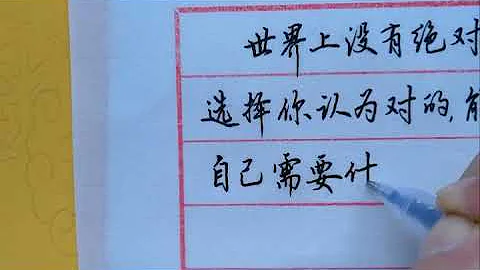 世界上没有绝对
选择你认为对的,
自己需要什